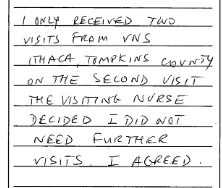 I ONLY RECEIVED TWO
VISITS FROM VNS
ITHACA, TOMPKINS COUNTY
ON THE SECOND VISIT
THE VISITING NURSE
DECIDED I DID NOT
NEED FURTHER
VISITS. I AGREED.